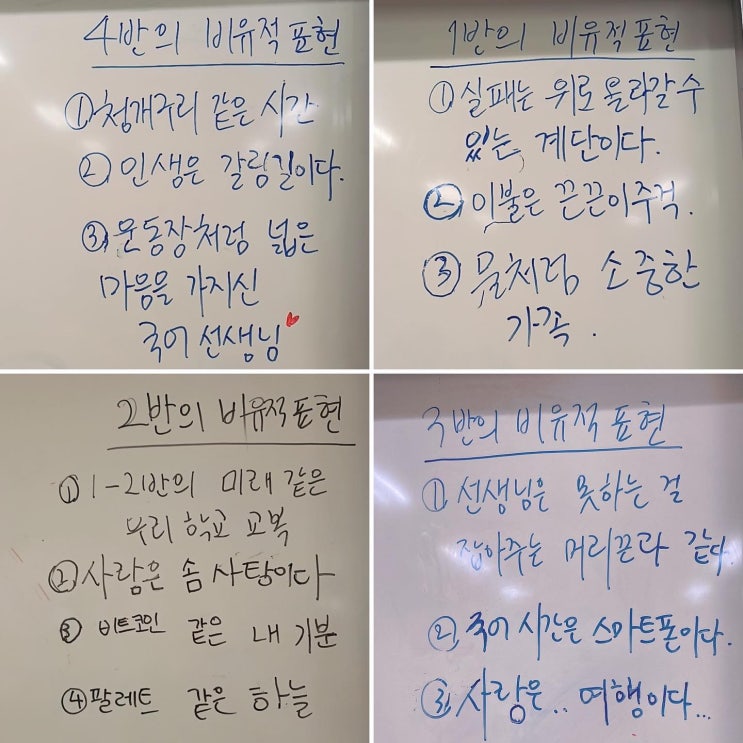 4반의 비유적 표현
① 청개구리 같은 시간
② 인생은 갈림길이다.
③ 운동장처럼 넓은
마음을 가지신
국어 선생님
1반의 비유적 표현
① 실패는 위로 올라갈 수
있는 계단이다.
② 이불은 끈끈이주걱.
③ 물처럼 소중한
가족.
2반의 비유적 표현
① 1-2반의 미래 같은
우리 학교 교복
② 사람은 솜 사탕이다
③ 비트코인 같은 내 기분
④ 팔레트 같은 하늘
3반의 비유적 표현
① 선생님은 못하는 걸
잡아주는 머리끈과 같다.
② 국어 시간은 스마트폰이다.
③ 사랑은.. 여행이다...